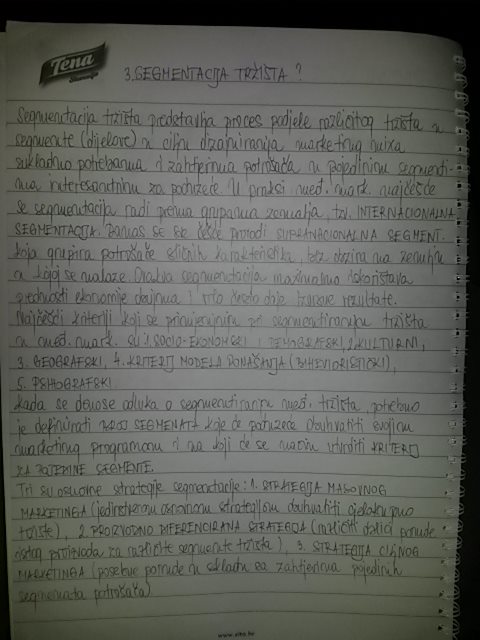 Tena
3. SEGMENTACIJA TRŽIŠTA?
Segmentacija tržišta predstavlja proces podjele različitog tržišta u
segmente (dijelove) u cilju dizajniranja marketing mixa
sukladno potrebama i zahtjevima potrošača u pojedinim segmenti-
ma interesantnim za poduzeće. U praksi međ. mark. najčešće
se segmentacija radi prema grupama zemalja, tzv. INTERNACIONALNA
SEGMENTACIJA. Danas se sve češće provodi SUPRANACIONALNA SEGMENT.
koja grupira potrošače sličnih karakteristika, bez obzira na zemlju
u kojoj se nalaze. Ovakva segmentacija maximalno iskorištava
prednosti ekonomije obujma i vrlo često daje trajne rezultate.
Najčešći kriteriji koji se primjenjuju pri segmentiranju tržišta
u međ. mark. su 1. SOCIO-EKONOMSKI I DEMOGRAFSKI, 2. KULTURNI,
3. GEOGRAFSKI, 4. KRITERIJ MODELA PONAŠANJA (BIHEVIORISTIČKI),
5. PSIHOGRAFSKI.
Kada se donose odluka o segmentiranju međ. tržišta, potrebno
je definirati BROJ SEGMENATA koje će poduzeće obuhvatiti svojim
marketing programom i na koji će se način utvrditi KRITERIJ
ZA POJEDINE SEGMENTE.
Tri su osnovne strategije segmentacije: 1. STRATEGIJA MASOVNOG
MARKETINGA (jedinstvenom osnovnom strategijom obuhvatiti cjelokupno
tržište), 2. PROIZVODNO DIFERENCIRANA STRATEGIJA (različiti oblici ponude
istog proizvoda za različite segmente tržišta), 3. STRATEGIJA CILJNOG
MARKETINGA (posebne ponude u skladu sa zahtjevima pojedinih
segmenata potrošača).